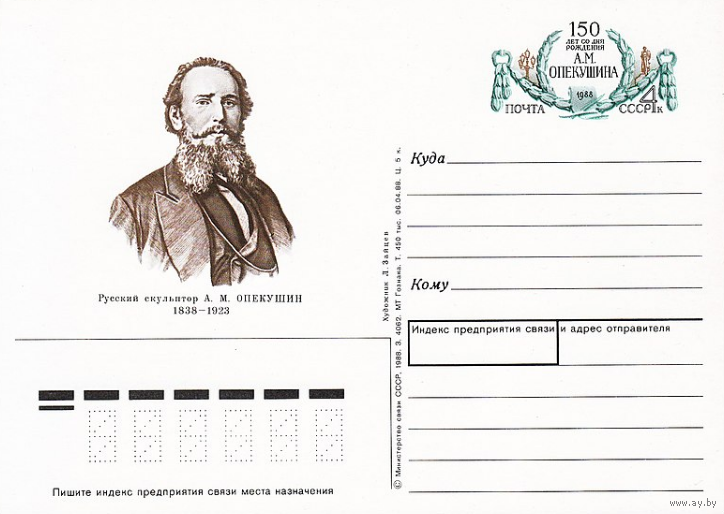 150
ЛЕТ СО ДНЯ
РОЖДЕНИЯ
А.М.
ОПЕКУШИНА
1988
ПОЧТА СССР 4 к
Русский скульптор А. М. ОПЕКУШИН
1838—1923
Куда
Кому
Индекс предприятия связи и адрес отправителя
Художник Л. Зайцев
© Министерство связи СССР, 1988. З. 4062. МТ Гознака. Т. 450 тыс. 06.04.88. Ц. 5 к.
Пишите индекс предприятия связи места назначения
www.ay.by